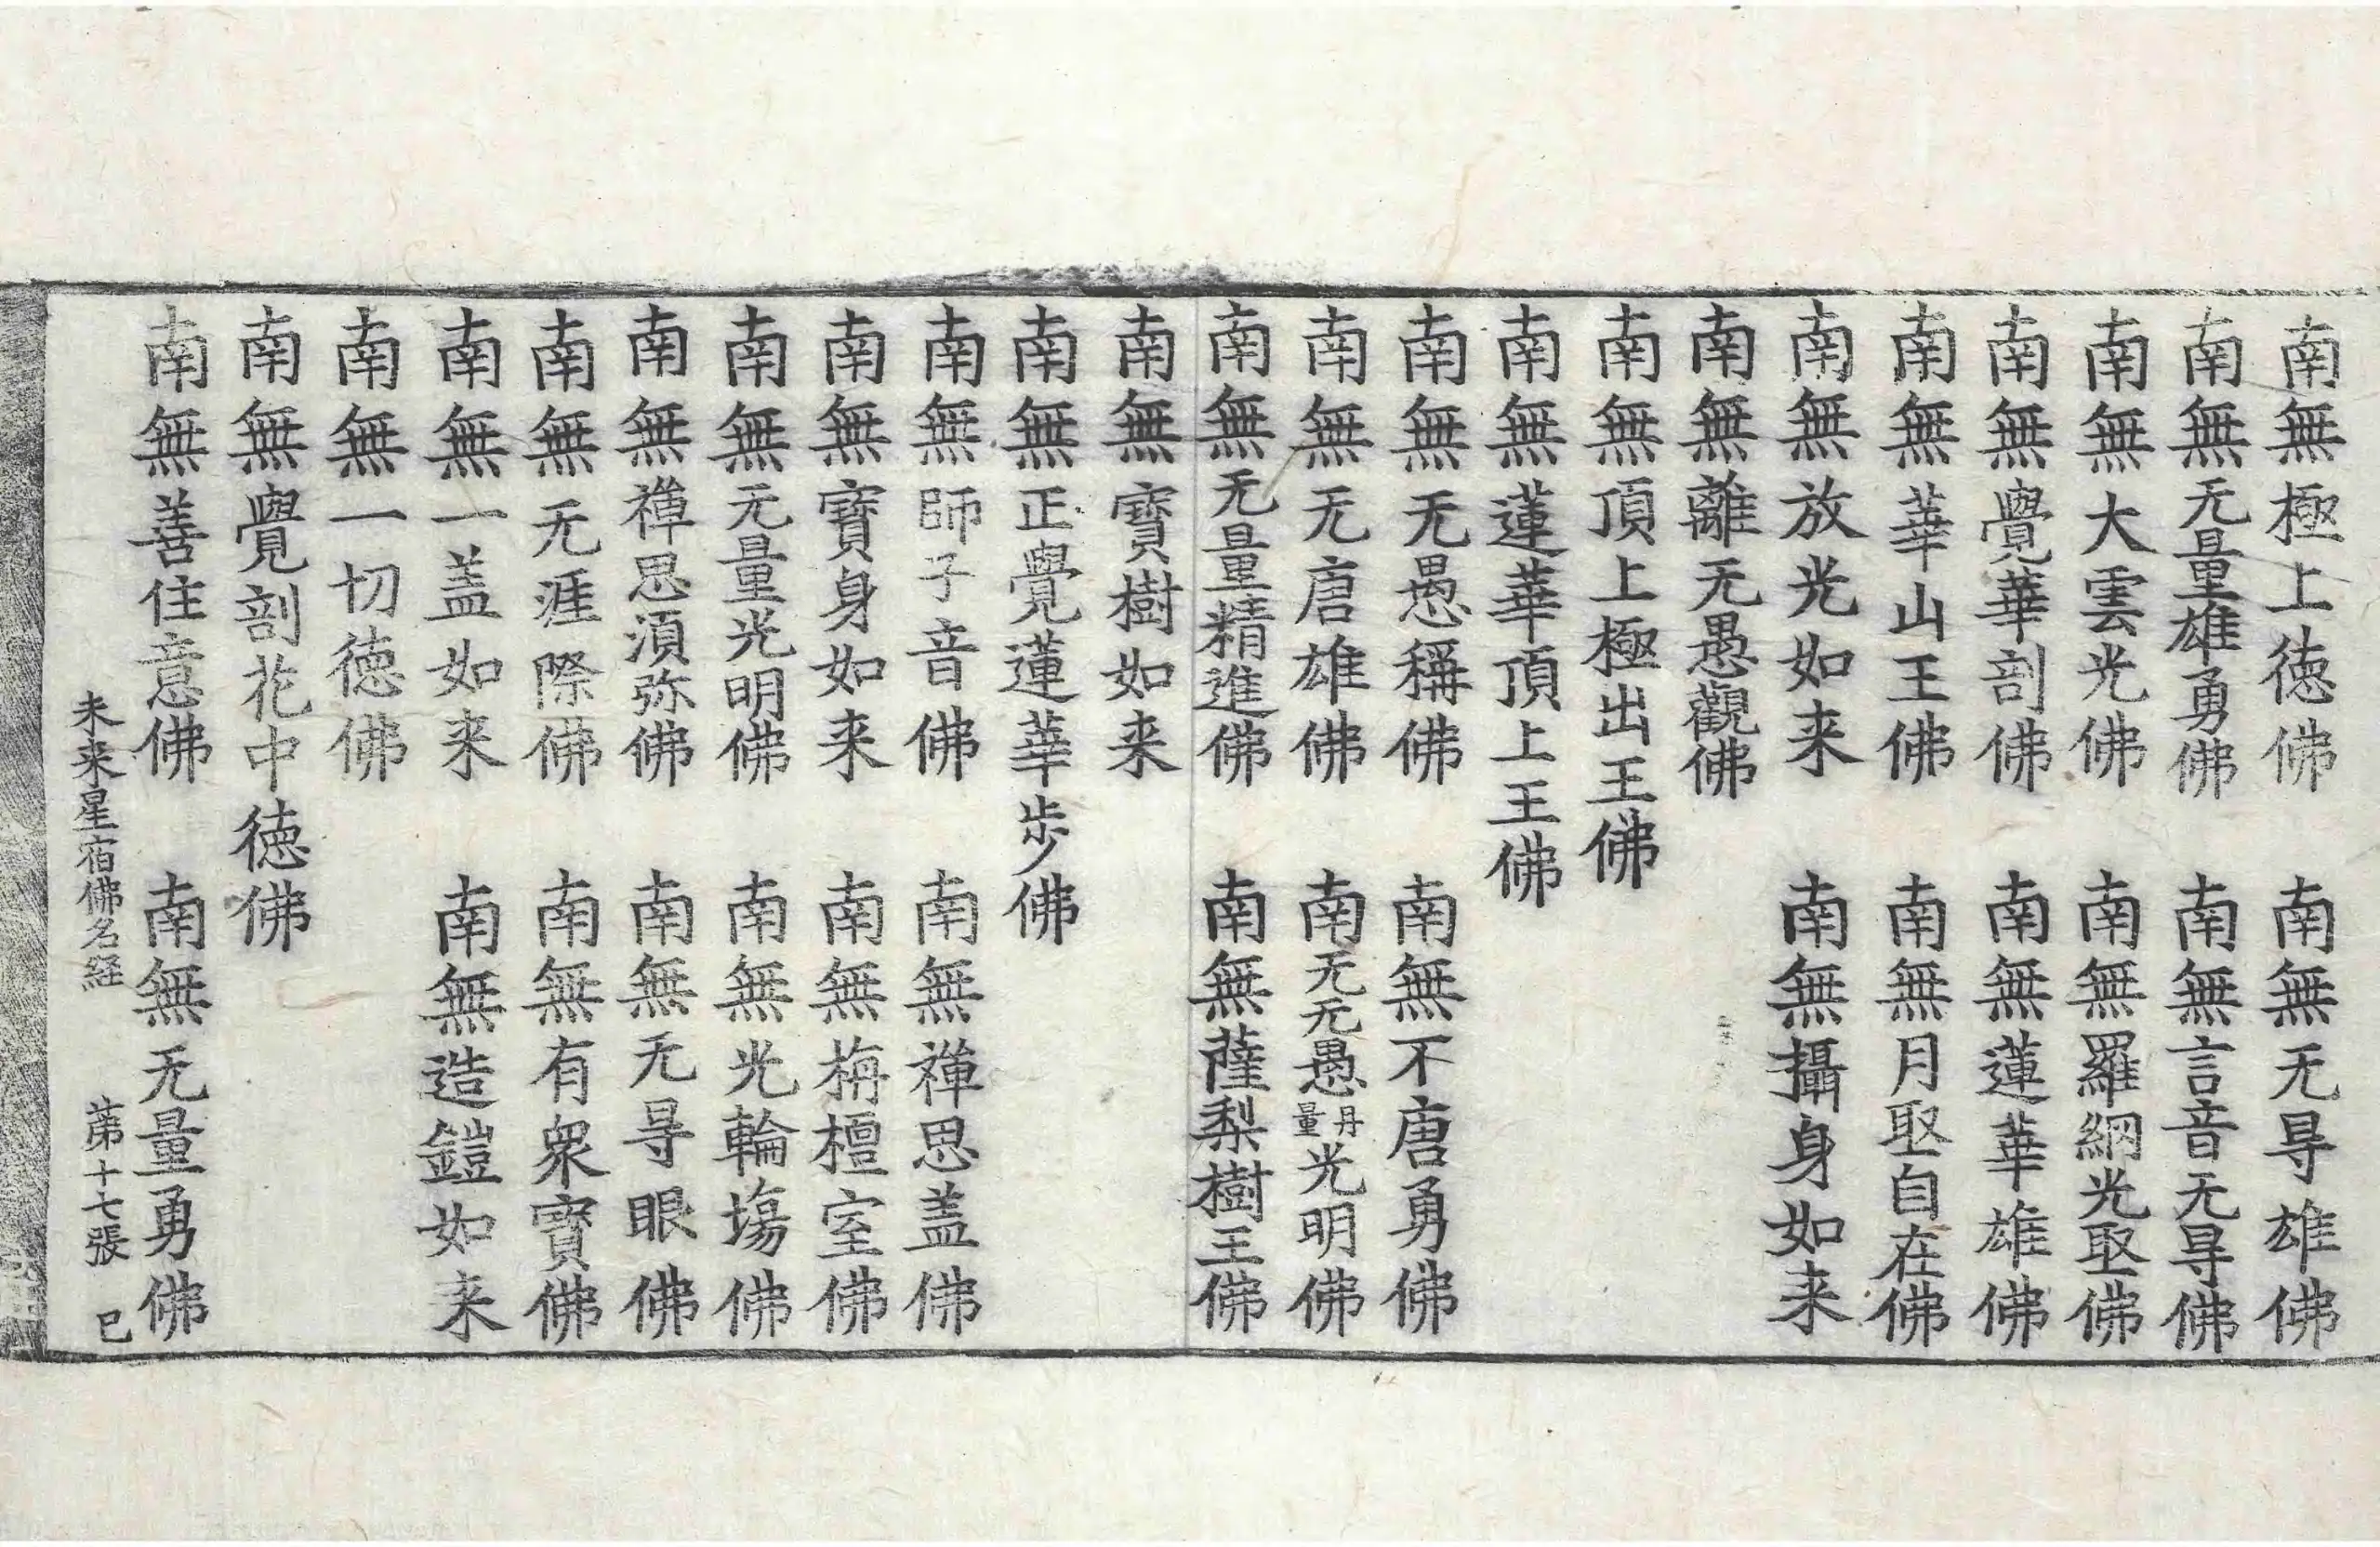 南無極上徳佛　南無无㝵雄佛
南無无量雄勇佛　南無言音无㝵佛
南無大雲光佛　南無羅網光㝡佛
南無覺華剖佛　南無蓮華雄佛
南無華山王佛　南無月㝡自在佛
南無放光如来　南無攝身如来
南無離无愚觀佛
南無頂上極出王佛
南無蓮華頂上王佛
南無无愚稱佛　南無不唐勇佛
南無无唐雄佛　南无无愚丹量光明佛
南無无量精進佛　南無薩梨樹王佛
南無寶樹如来
南無正覺蓮華步佛
南無師子音佛　南無禪思盖佛
南無寶身如来　南無栴檀室佛
南無无量光明佛　南無光輪塲佛
南無禪思湏弥佛　南無无㝵眼佛
南無无涯際佛　南無有衆寶佛
南無一盖如来　南無造鎧如来
南無一切徳佛
南無覺剖花中徳佛
南無善住意佛　南無无量勇佛
未来星宿佛名経　苐十七張　巳